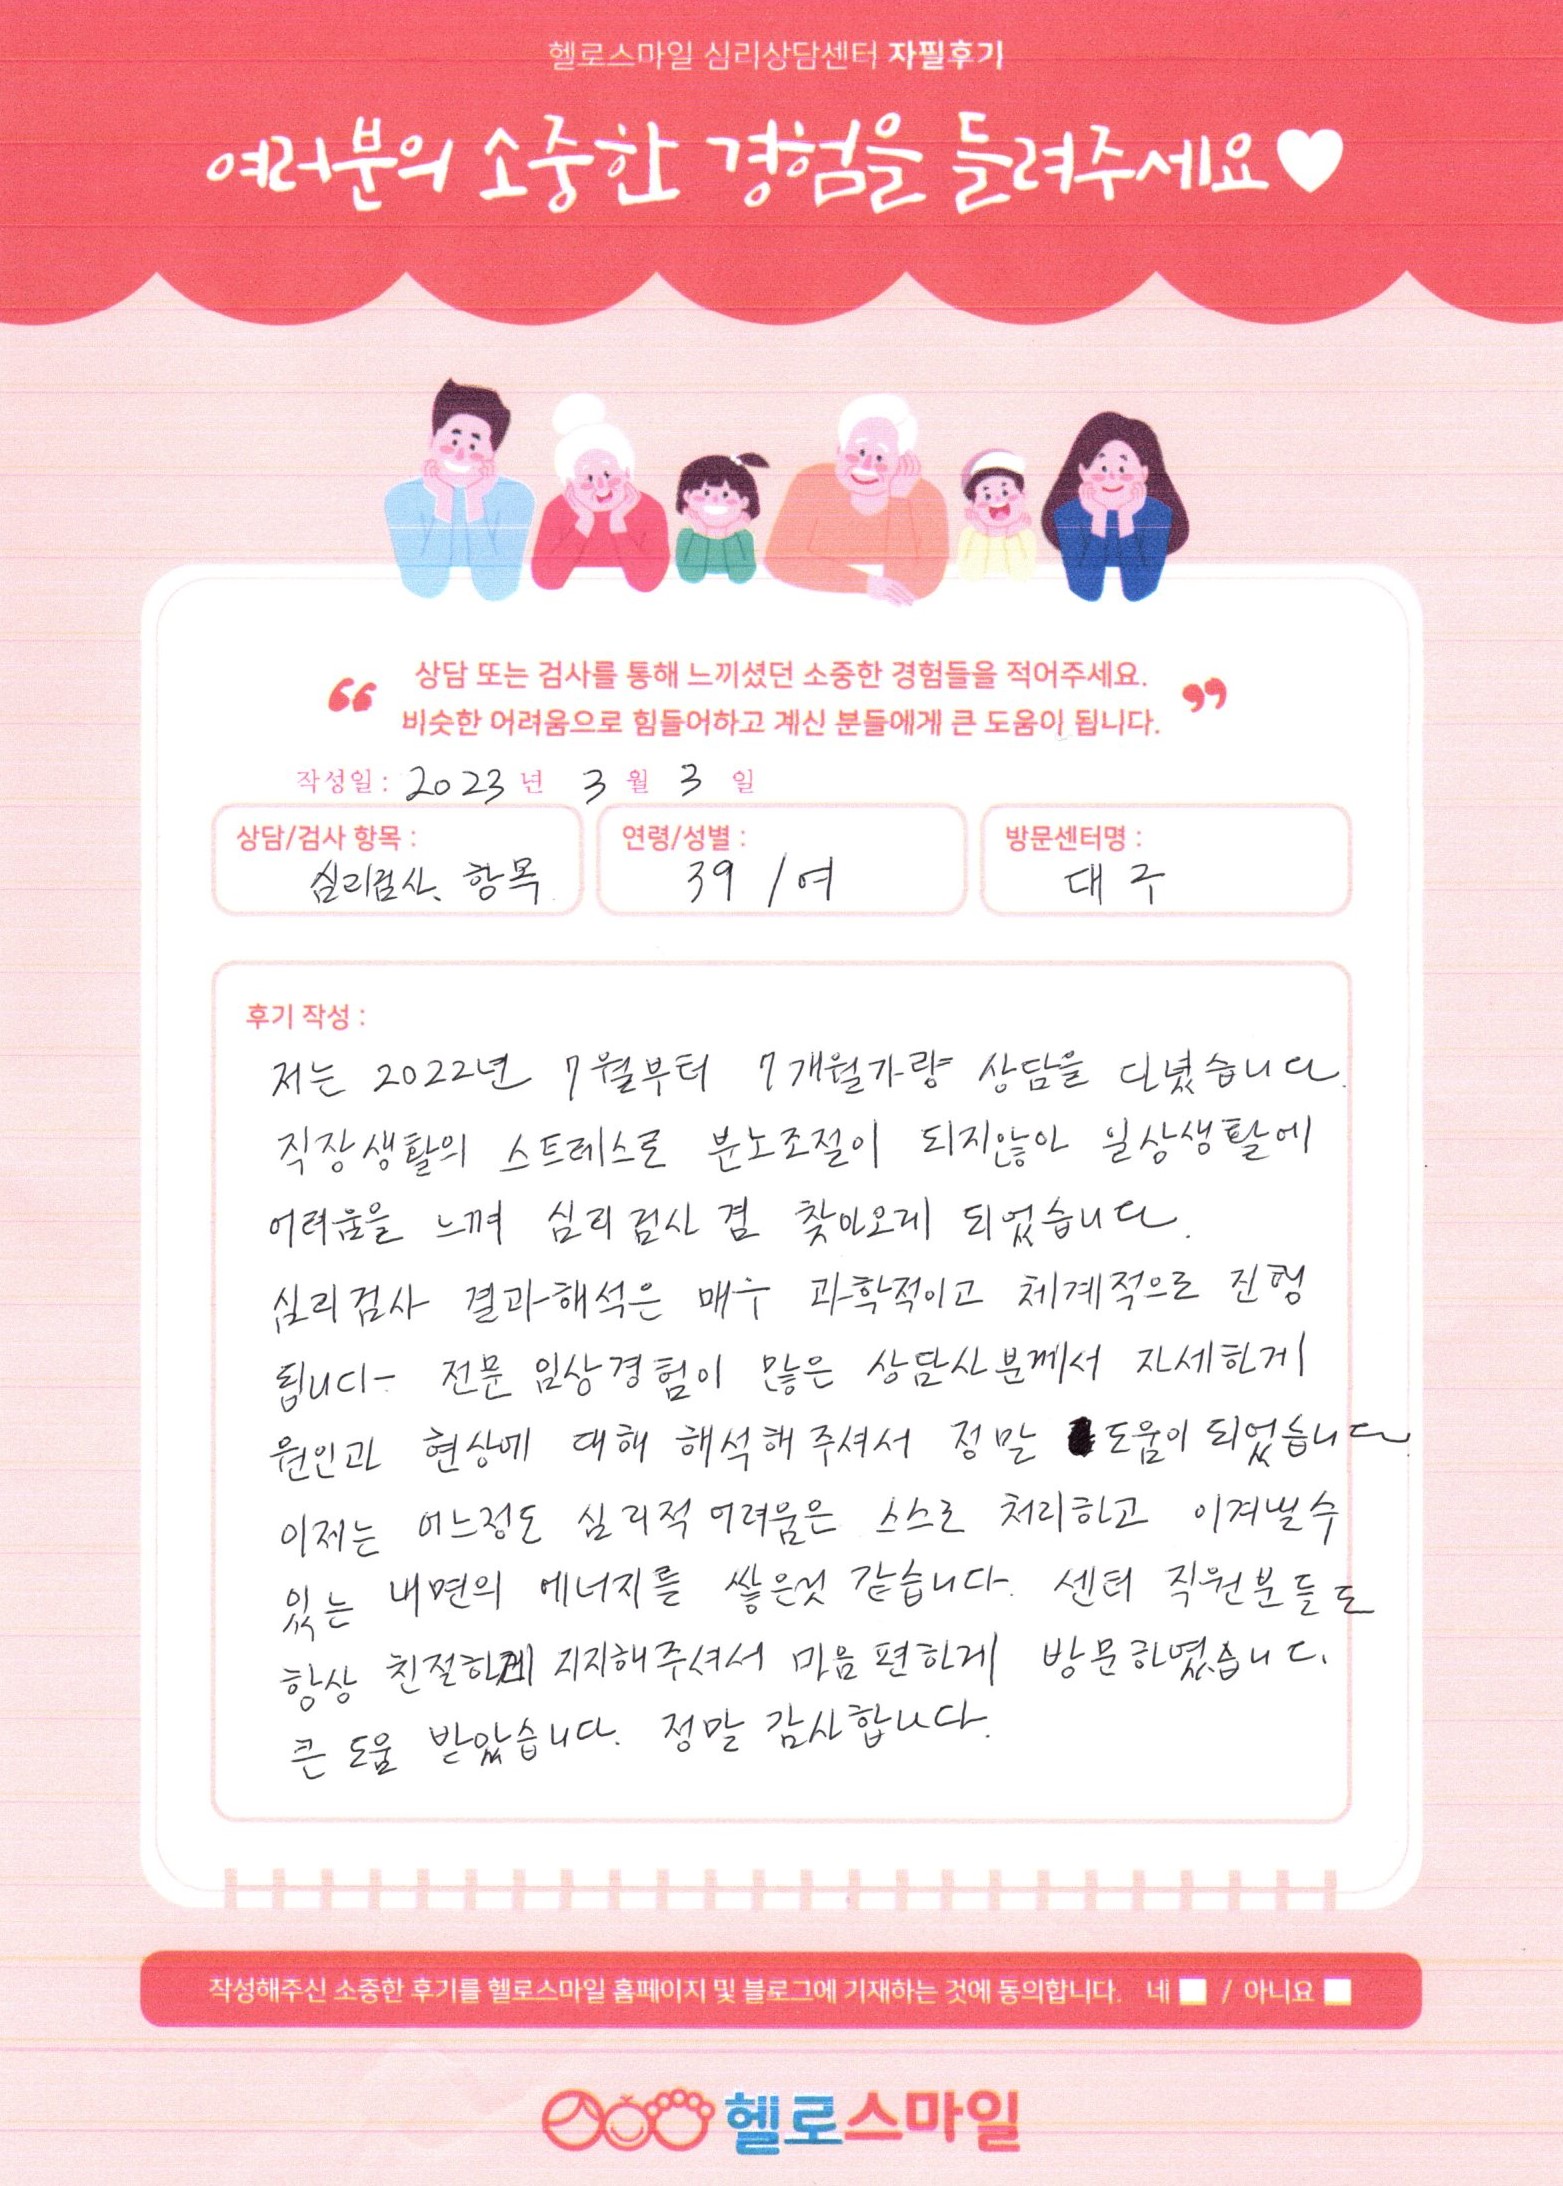 헬로스마일 심리상담센터 자필후기
여러분의 소중한 경험을 들려주세요♥
“ 상담 또는 검사를 통해 느끼셨던 소중한 경험들을 적어주세요. ”
비슷한 어려움으로 힘들어하고 계신 분들에게 큰 도움이 됩니다.
작성일: 2023 년 3 월 3 일
상담/검사 항목 : 연령/성별 : 방문센터명 :
심리검사. 항목 39 / 여 대구
후기 작성 :
저는 2022년 7월부터 7개월가량 상담을 다녔습니다.
직장생활의 스트레스로 분노조절이 되지않아 일상생활에
어려움을 느껴 심리검사 겸 찾아오게 되었습니다.
심리검사 결과해석은 매우 과학적이고 체계적으로 진행
됩니다 전문 임상경험이 많은 상담사분께서 자세하게
원인과 현상에 대해 해석해주셔서 정말 도움이 되었습니다
이제는 어느정도 심리적 어려움은 스스로 처리하고 이겨낼수
있는 내면의 에너지를 쌓은것 같습니다. 센터 직원분들도
항상 친절하게 지지해주셔서 마음 편하게 방문하였습니다.
큰 도움 받았습니다. 정말 감사합니다.
작성해주신 소중한 후기를 헬로스마일 홈페이지 및 블로그에 기재하는 것에 동의합니다. 네 / 아니요
헬로스마일